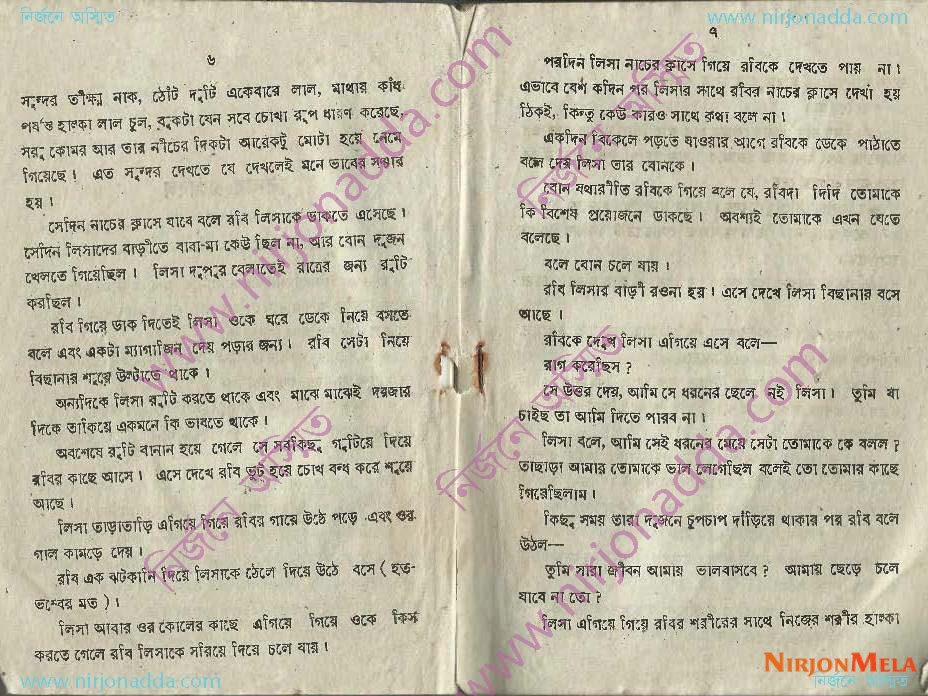 নির্জনে অস্মিত
www.nirjonadda.com
৬
সেদিন নাচের ক্লাসে যাবে বলে রবি লিসাকে ডাকতে এসেছে।
সেদিন লিসাদের বাড়ীতে বাবা-মা কেউ ছিল না, আর বোন দুজন
খেলতে গিয়েছিল। লিসা দুপুর বেলাতেই রাত্রের জন্য রুটি
করছিল।
রবি গিয়ে ডাক দিতেই লিসা ওকে ঘরে ডেকে নিয়ে বসতে
বলে এবং একটা ম্যাগাজিন দেয় পড়ার জন্য। রবি সেটা নিয়ে
বিছানার শুয়ে উল্টাতে থাকে।
অন্যদিকে লিসা রুটি করতে থাকে এবং মাঝে মাঝেই দরজার
দিকে তাকিয়ে একমনে কি ভাবতে থাকে।
অবশেষে রুটি বানান হয়ে গেলে সে সবকিছু গুটিয়ে দিয়ে
রবির কাছে আসে। এসে দেখে রবি হয়ে চোখ বন্ধ করে শুয়ে
আছে।
লিসা তাড়াতাড়ি এগিয়ে গিয়ে রবির গায়ে উঠে পড়ে এবং ওর
গাল কামড়ে দেয়।
রবি এক ঝটকানি দিয়ে লিসাকে ঠেলে দিয়ে উঠে বসে (হত-
ভম্বের মত)।
লিসা আবার ওর কোলের কাছে এগিয়ে গিয়ে ওকে কিস
করতে গেলে রবি লিসাকে সরিয়ে দিয়ে চলে যায়।
৭
পরদিন লিসা নাচের ক্লাসে গিয়ে রবিকে দেখতে পায় না।
এভাবে বেশ কদিন পর লিসার সাথে রবির নাচের ক্লাসে দেখা হয়
ঠিকই, কিন্তু কেউ কারও সাথে কথা বলে না।
একদিন বিকেলে পড়তে যাওয়ার আগে রবিকে ডেকে পাঠাতে
বলে দেয় লিসা তার বোনকে।
বোন যথারীতি রবিকে গিয়ে বলে যে, রবিদা দিদি তোমাকে
কি বিশেষ প্রয়োজনে ডাকছে। অবশ্যই তোমাকে এখন যেতে
বলেছে।
বলে বোন চলে যায়।
রবি লিসার বাড়ী রওনা হয়। এসে দেখে লিসা বিছানার বসে
আছে।
রবিকে দেখে লিসা এগিয়ে এসে বলে—
রাগ করেছিস?
সে উত্তর দেয়, আমি সে ধরনের ছেলে নই লিসা। তুমি যা
চাইছ তা আমি দিতে পারব না।
লিসা বলে, আমি সেই ধরনের মেয়ে সেটা তোমাকে কে বলল?
তাছাড়া আমার তোমাকে ভাল লেগেছিল বলেই তো তোমার কাছে
গিয়েছিলাম।
কিছু সময় তারা দুজনে চুপচাপ দাঁড়িয়ে থাকার পর রবি বলে
উঠল—
তুমি সারা জীবন আমায় ভালবাসবে? আমায় ছেড়ে চলে
যাবে না তো?
লিসা এগিয়ে গিয়ে রবির শরীরের সাথে নিজের শরীর হাল্কা
www.nirjonadda.com
নির্জনে অস্মিত
NIRJONMELA
নির্জনে অস্মিত
www.nirjonadda.com